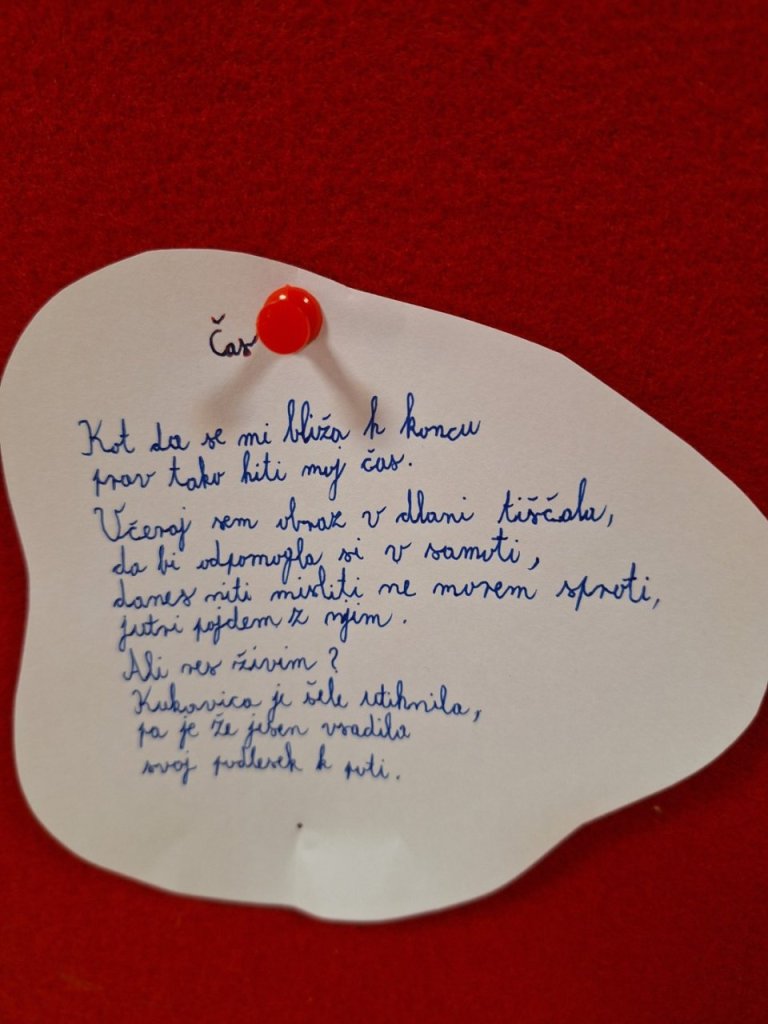 Čas
Kot da se mi bliža k koncu
prav tako hiti moj čas.
Včeraj sem obraz v dlani tiščala,
da bi odpomogla si v samoti,
danes niti misliti ne morem sproti,
jutri pojdem z njim.
Ali res živim?
Kukavica je šele utihnila,
pa je že jesen vsadila
svoj podlesek k poti.